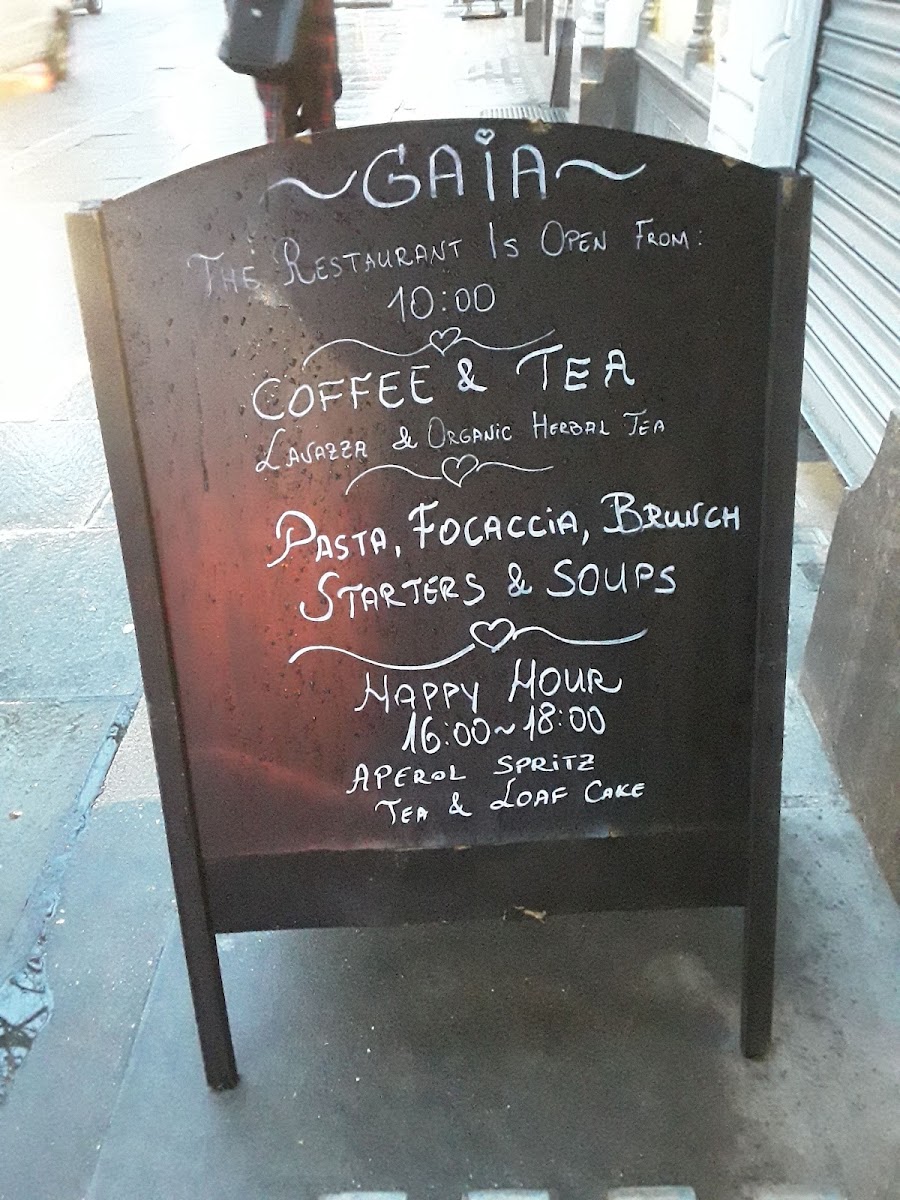 ~GAiA~
THE RESTAURANT IS OPEN FROM:
10:00
COFFEE & TEA
LAVAZZA & ORGANIC HERBAL TEA
PASTA, FOCACCiA, BRUNCH
STARTERS & SOUPS
HAPPY HOUR
16:00~18:00
APEROL SPRiTZ
TEA & LOAF CAKE